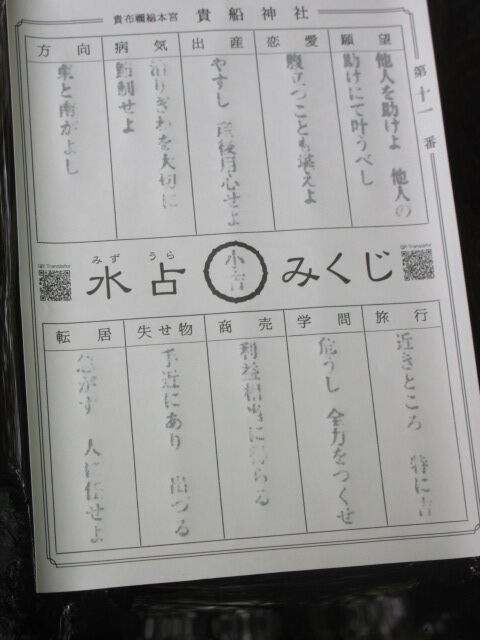 貴布禰総本宮 貴船神社
第十一番
願望
他人を助けよ 他人の
助けにて叶うべし
恋愛
腹立つことも堪えよ
出産
やすし 産後用心せよ
病気
治りぎわを大切に
せよ
方向
東と南がよし
みず うら
水占
小吉
みくじ
QR Translator
QR Translator
旅行
近きところ 特に吉
学問
危うし 全力をつくせ
商売
利益相当に得らる
失せ物
手近にあり 出づる
転居
急がず 人に任せよ